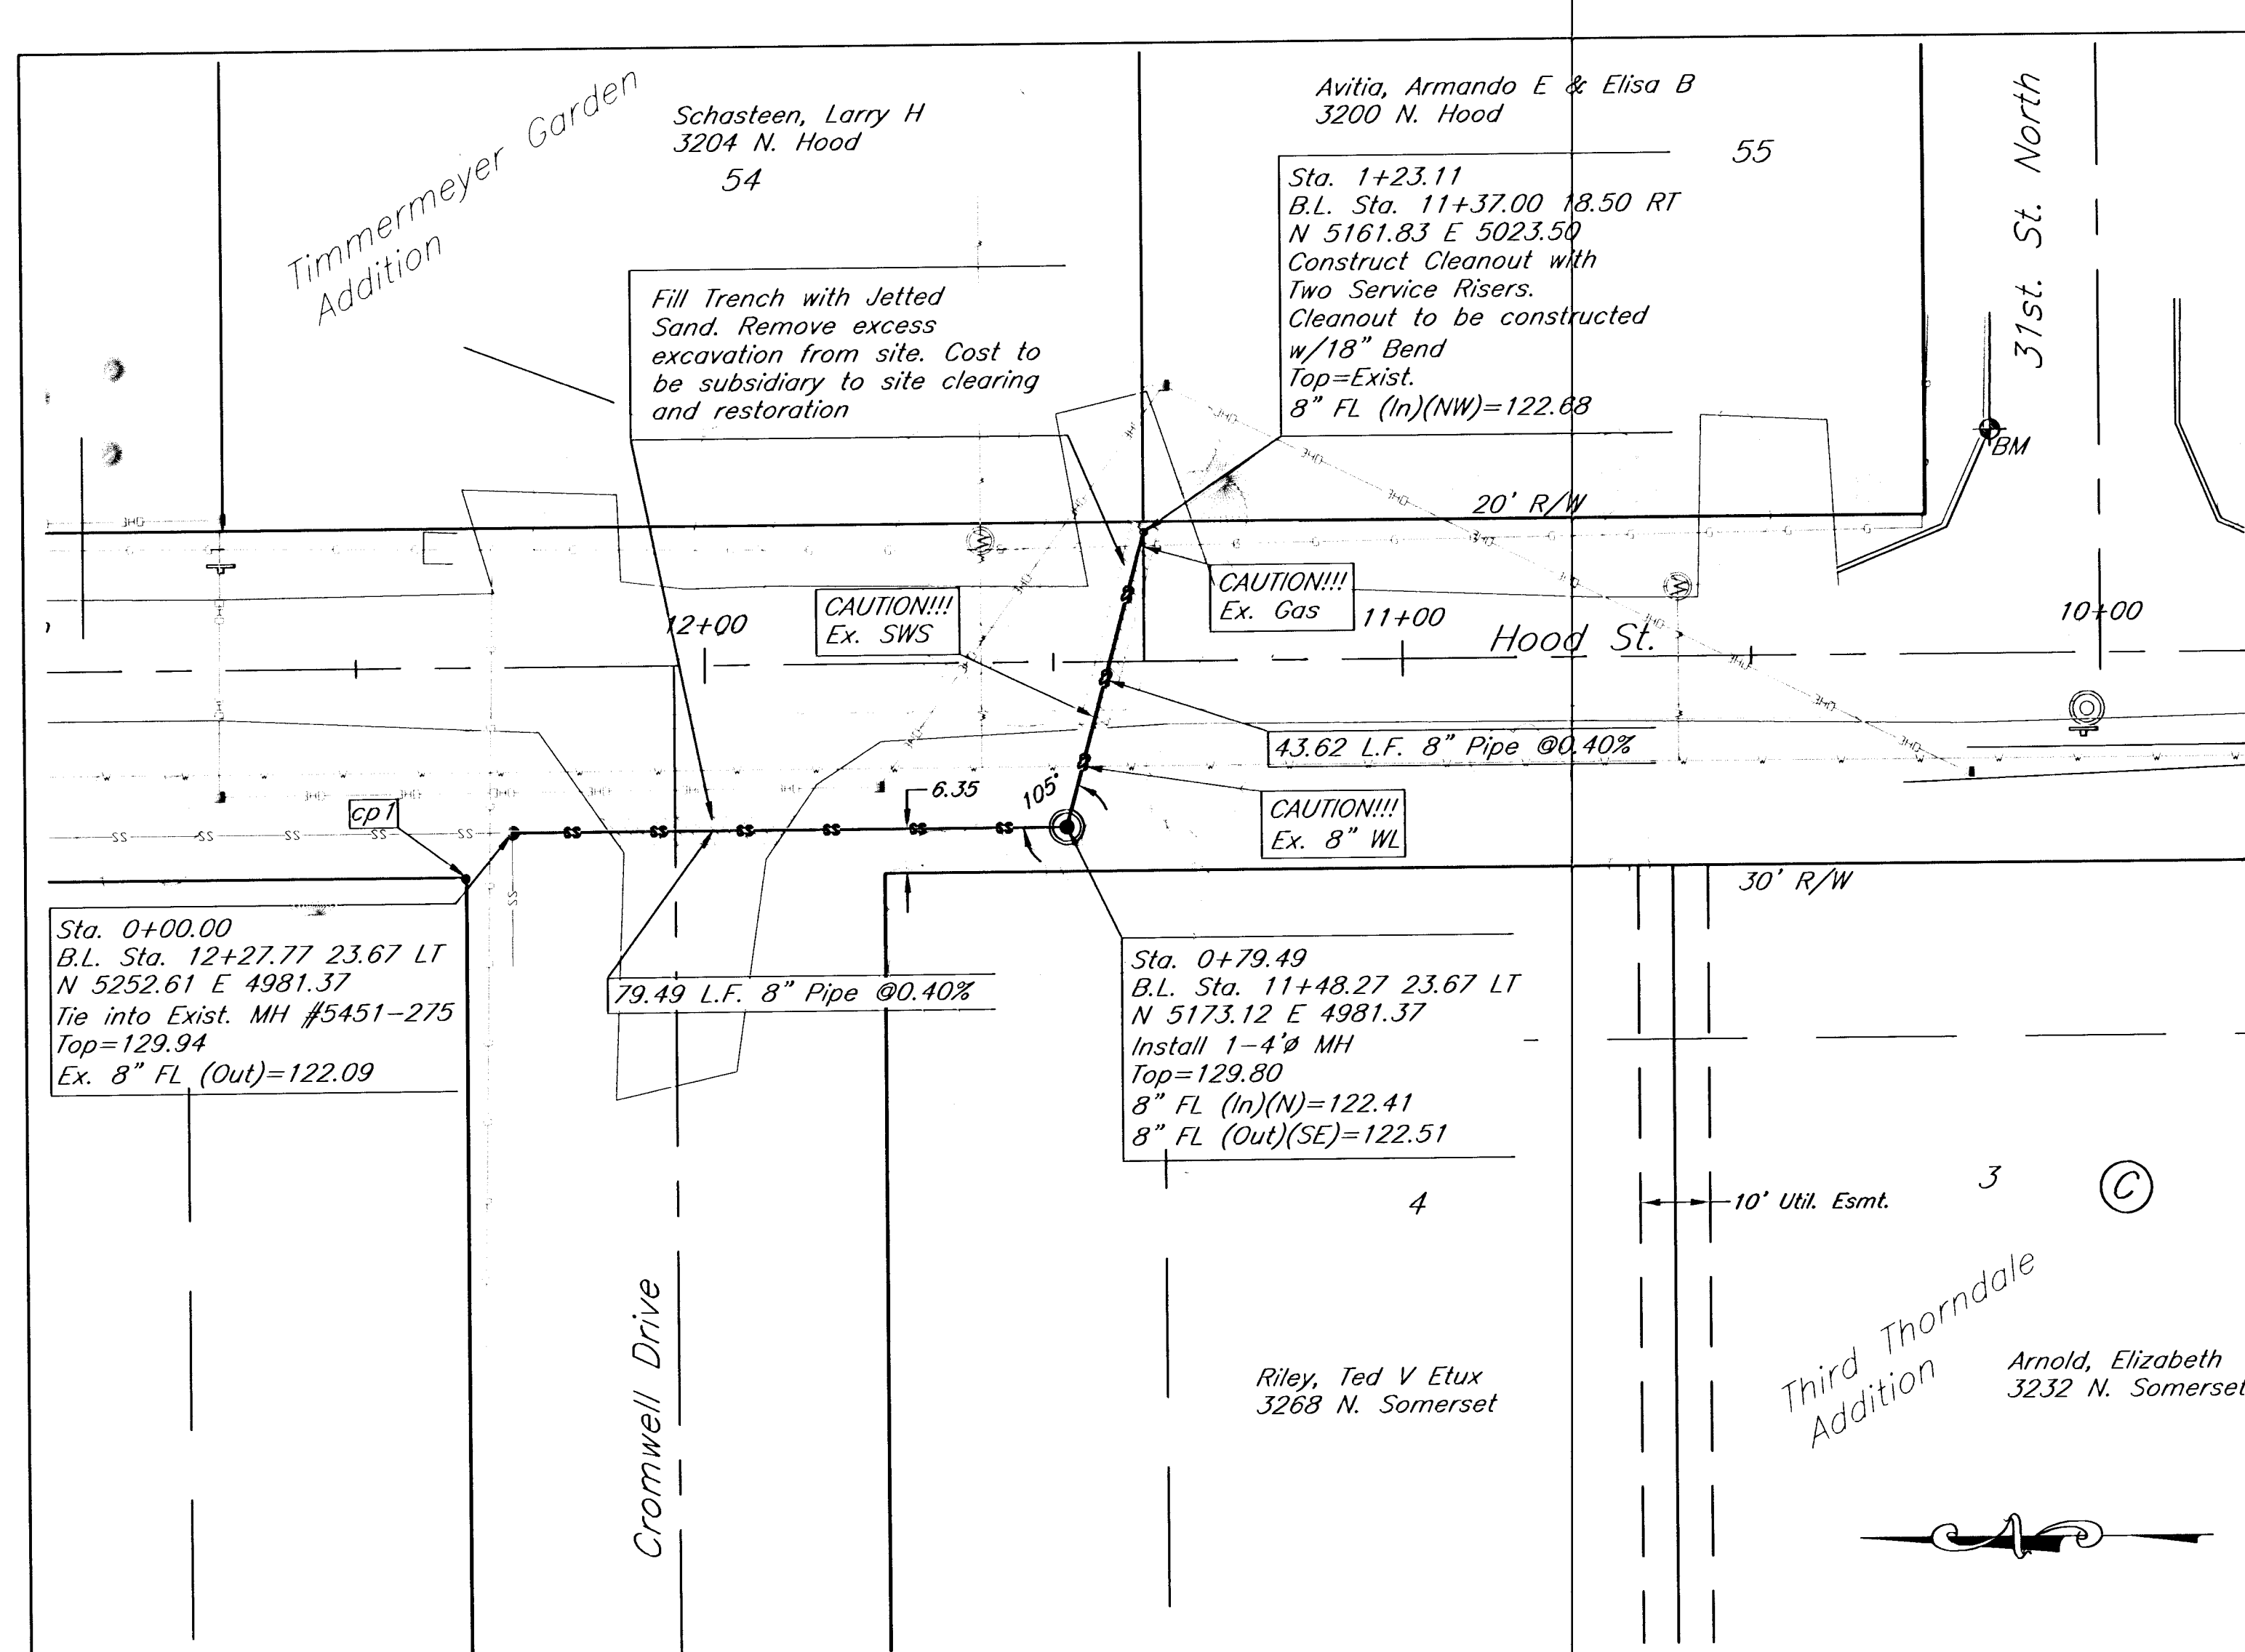 Timmermeyer Garden
Addition
Schasteen, Larry H
3204 N. Hood
54
Avitia, Armando E & Elisa B
3200 N. Hood
55
31st. St. North
Sta. 1+23.11
B.L. Sta. 11+37.00 18.50 RT
N 5161.83 E 5023.50
Construct Cleanout with
Two Service Risers.
Cleanout to be constructed
w/18" Bend
Top=Exist.
8" FL (In)(NW)=122.68
Fill Trench with Jetted
Sand. Remove excess
excavation from site. Cost to
be subsidiary to site clearing
and restoration
BM
20' R/W
CAUTION!!!
Ex. SWS
CAUTION!!!
Ex. Gas
12+00
11+00
10+00
Hood St.
43.62 L.F. 8" Pipe @0.40%
6.35
105°
cp1
CAUTION!!!
Ex. 8" WL
30' R/W
Sta. 0+00.00
B.L. Sta. 12+27.77 23.67 LT
N 5252.61 E 4981.37
Tie into Exist. MH #5451-275
Top=129.94
Ex. 8" FL (Out)=122.09
79.49 L.F. 8" Pipe @0.40%
Sta. 0+79.49
B.L. Sta. 11+48.27 23.67 LT
N 5173.12 E 4981.37
Install 1-4'ø MH
Top=129.80
8" FL (In)(N)=122.41
8" FL (Out)(SE)=122.51
4
10' Util. Esmt.
3
C
Cromwell Drive
Riley, Ted V Etux
3268 N. Somerset
Third Thorndale
Addition
Arnold, Elizabeth
3232 N. Somerset